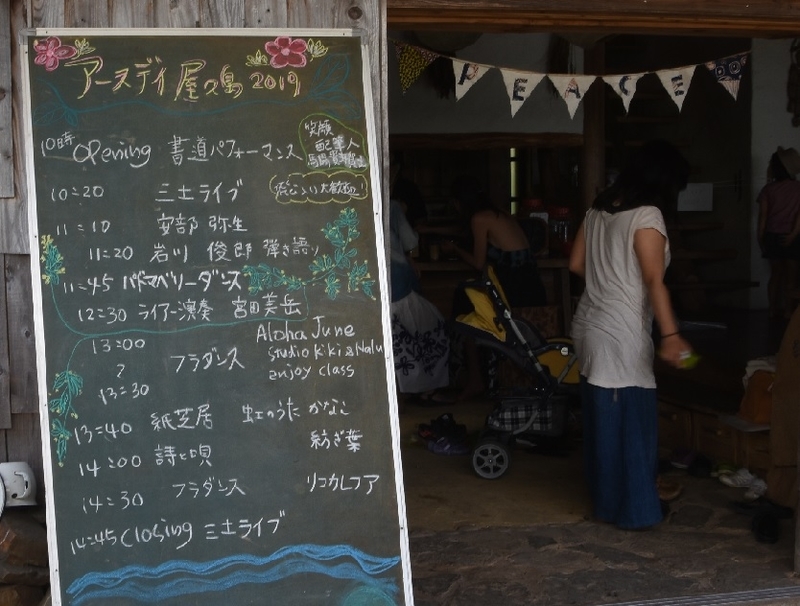 アースデイ屋久島 2019
PEACE
10時 Opening 書道パフォーマンス
笑顔
配華人
10:20 三土ライブ
11:10 安部 弥生
11:20 岩川 俊郎 弾き語り
11:45 パドマベリーダンス
12:30 ライアー演奏 宮田美岳
13:00
~
13:30
フラダンス
Aloha June
Studio Kiki & Nalu
enjoy class
13:40 紙芝居 虹のうた かなこ
14:00 詩と唄 紡ぎ葉
14:30 フラダンス リコカレフア
14:45 Closing 三土ライブ